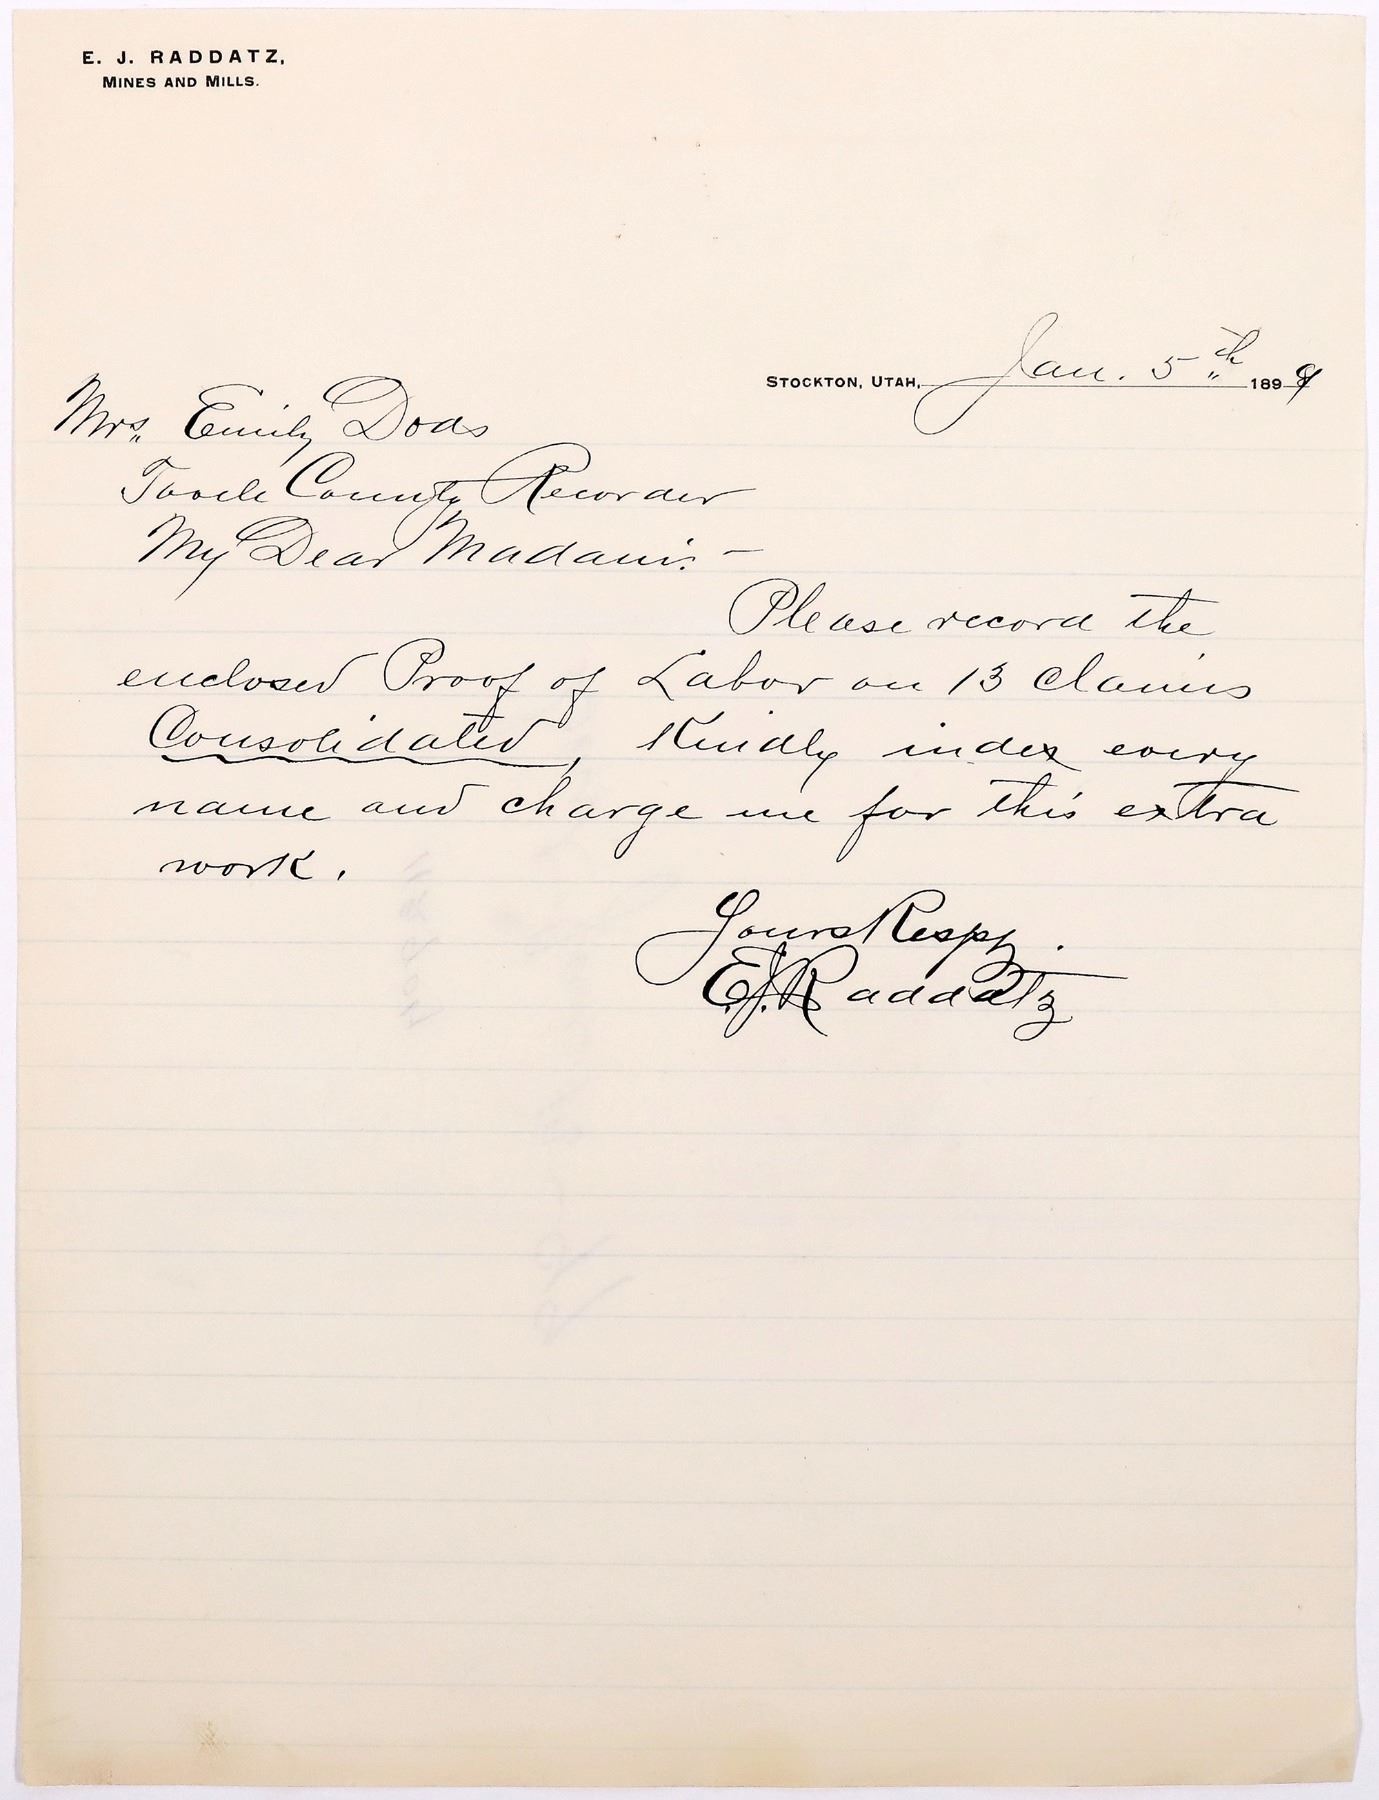 E. J. RADDATZ,
MINES AND MILLS.
STOCKTON, UTAH, Jan. 5th 1899
Mrs. Emily Dods
Tooele County Recorder
My Dear Madam:—
Please record the
enclosed Proof of Labor on 13 claims
Consolidated, Kindly index every
name and charge me for this extra
work.
Yours Respy.
E.J. Raddatz